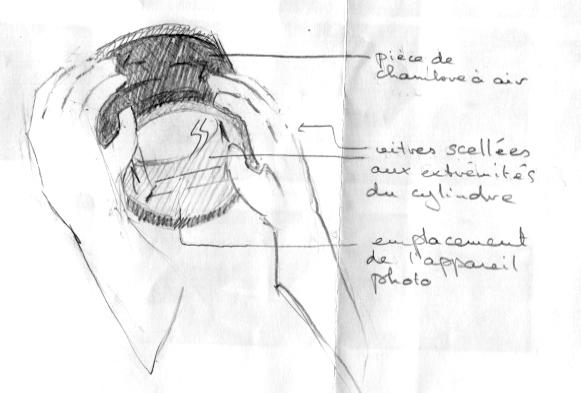 pièce de
chambre à air
vitres scellées
aux extrémités
du cylindre
emplacement
de l'appareil
photo